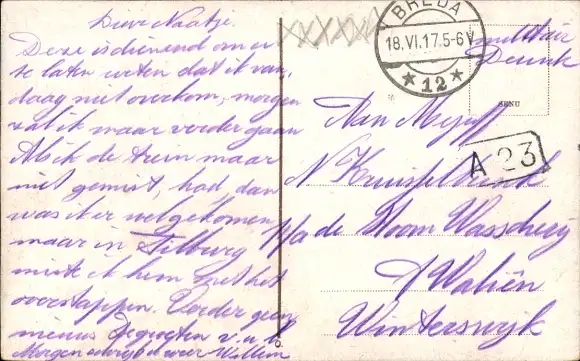 Lieve Naatje.
Deze is dienend om er
te laten weten dat ik van
daag niet overkom, morgen
zal ik maar verder gaan
Als ik de trein maar
niet gemist had, dan
was ik er wel gekomen
maar in Tilburg
mist ik hem met het
overstappen. Verder geen
nieuws Gegroeten v.u.
Morgen schrijf ik weer Willem
BREDA
18.VI.17.5-6V
12
militair
Dienst
Aan Mejuff
A 23
N
p/a de Stoom Wasscherij
Waliën
Winterswijk